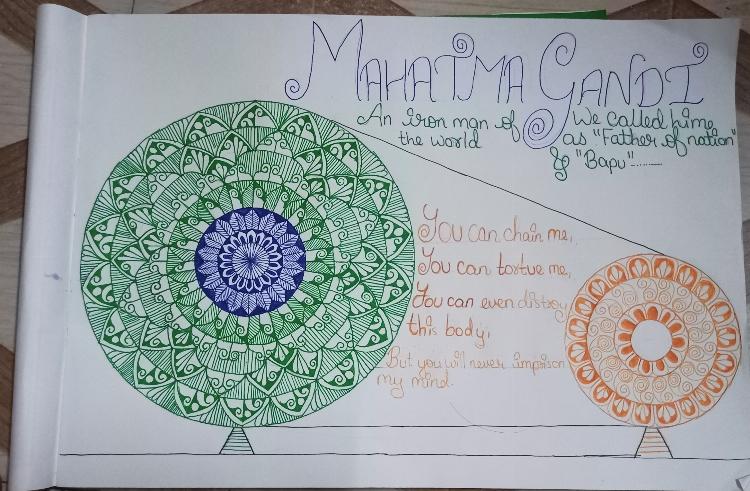 MAHATMA GANDI
An iron man of
the world
We called hime
as "Father of nation"
& "Bapu"........
You can chain me,
You can tortue me,
You can even distroy
this body,
But you will never imprison
my mind.